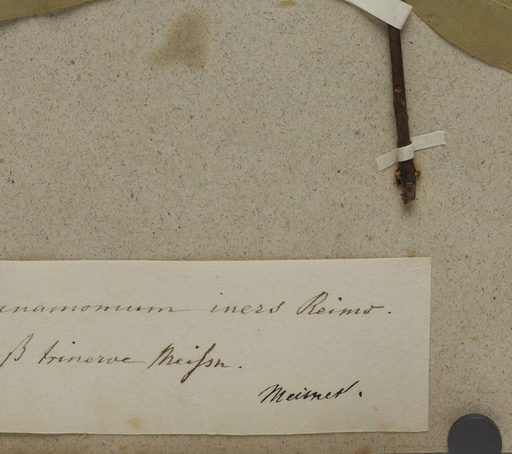 innamomum iners Reinw.
β trinerve Meißn.
Meisner.